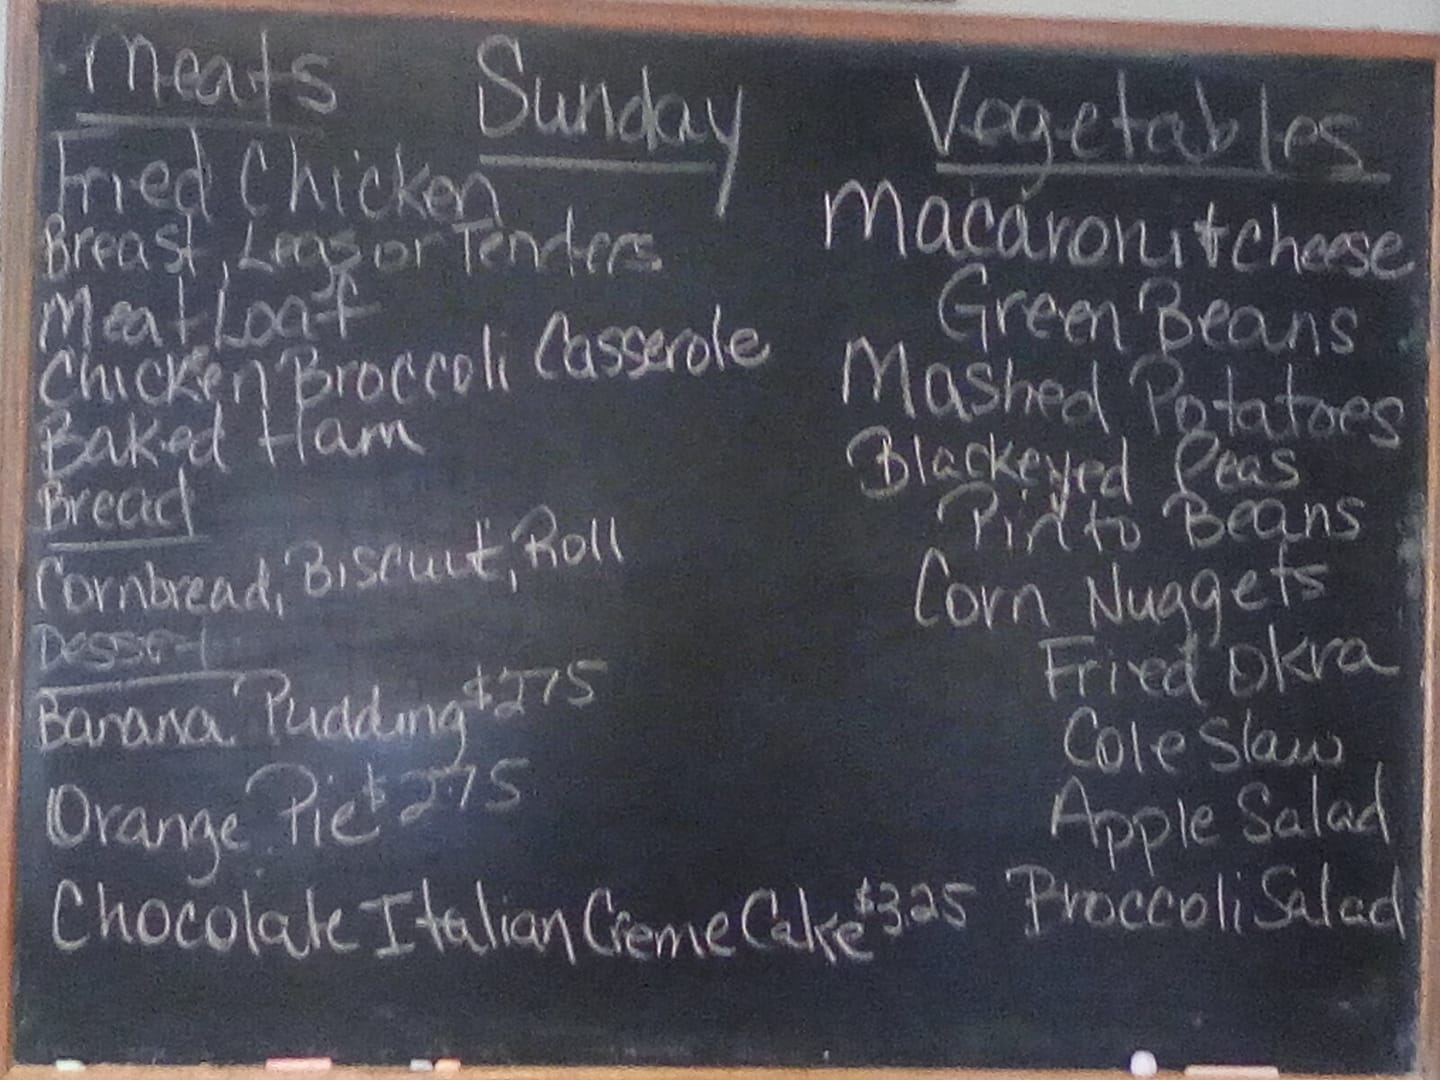 Meats
Sunday
Vegetables
Fried Chicken
Breast, Legs or Tenders
Meat Loaf
Chicken Broccoli Casserole
Baked Ham
Bread
Cornbread, Biscuit, Roll
Dessert
Banana Pudding $2.75
Orange Pie $2.75
Chocolate Italian Creme Cake $3.25
Macaroni + cheese
Green Beans
Mashed Potatoes
Blackeyed Peas
Pinto Beans
Corn Nuggets
Fried Okra
Cole Slaw
Apple Salad
Broccoli Salad